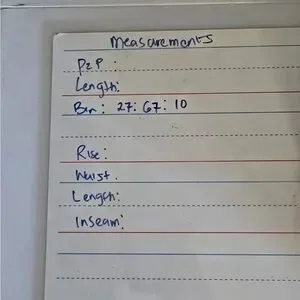 Measurements
P2P :
Length:
Bin : 27: 67: 10
Rise:
Waist.
Length:
Inseam: